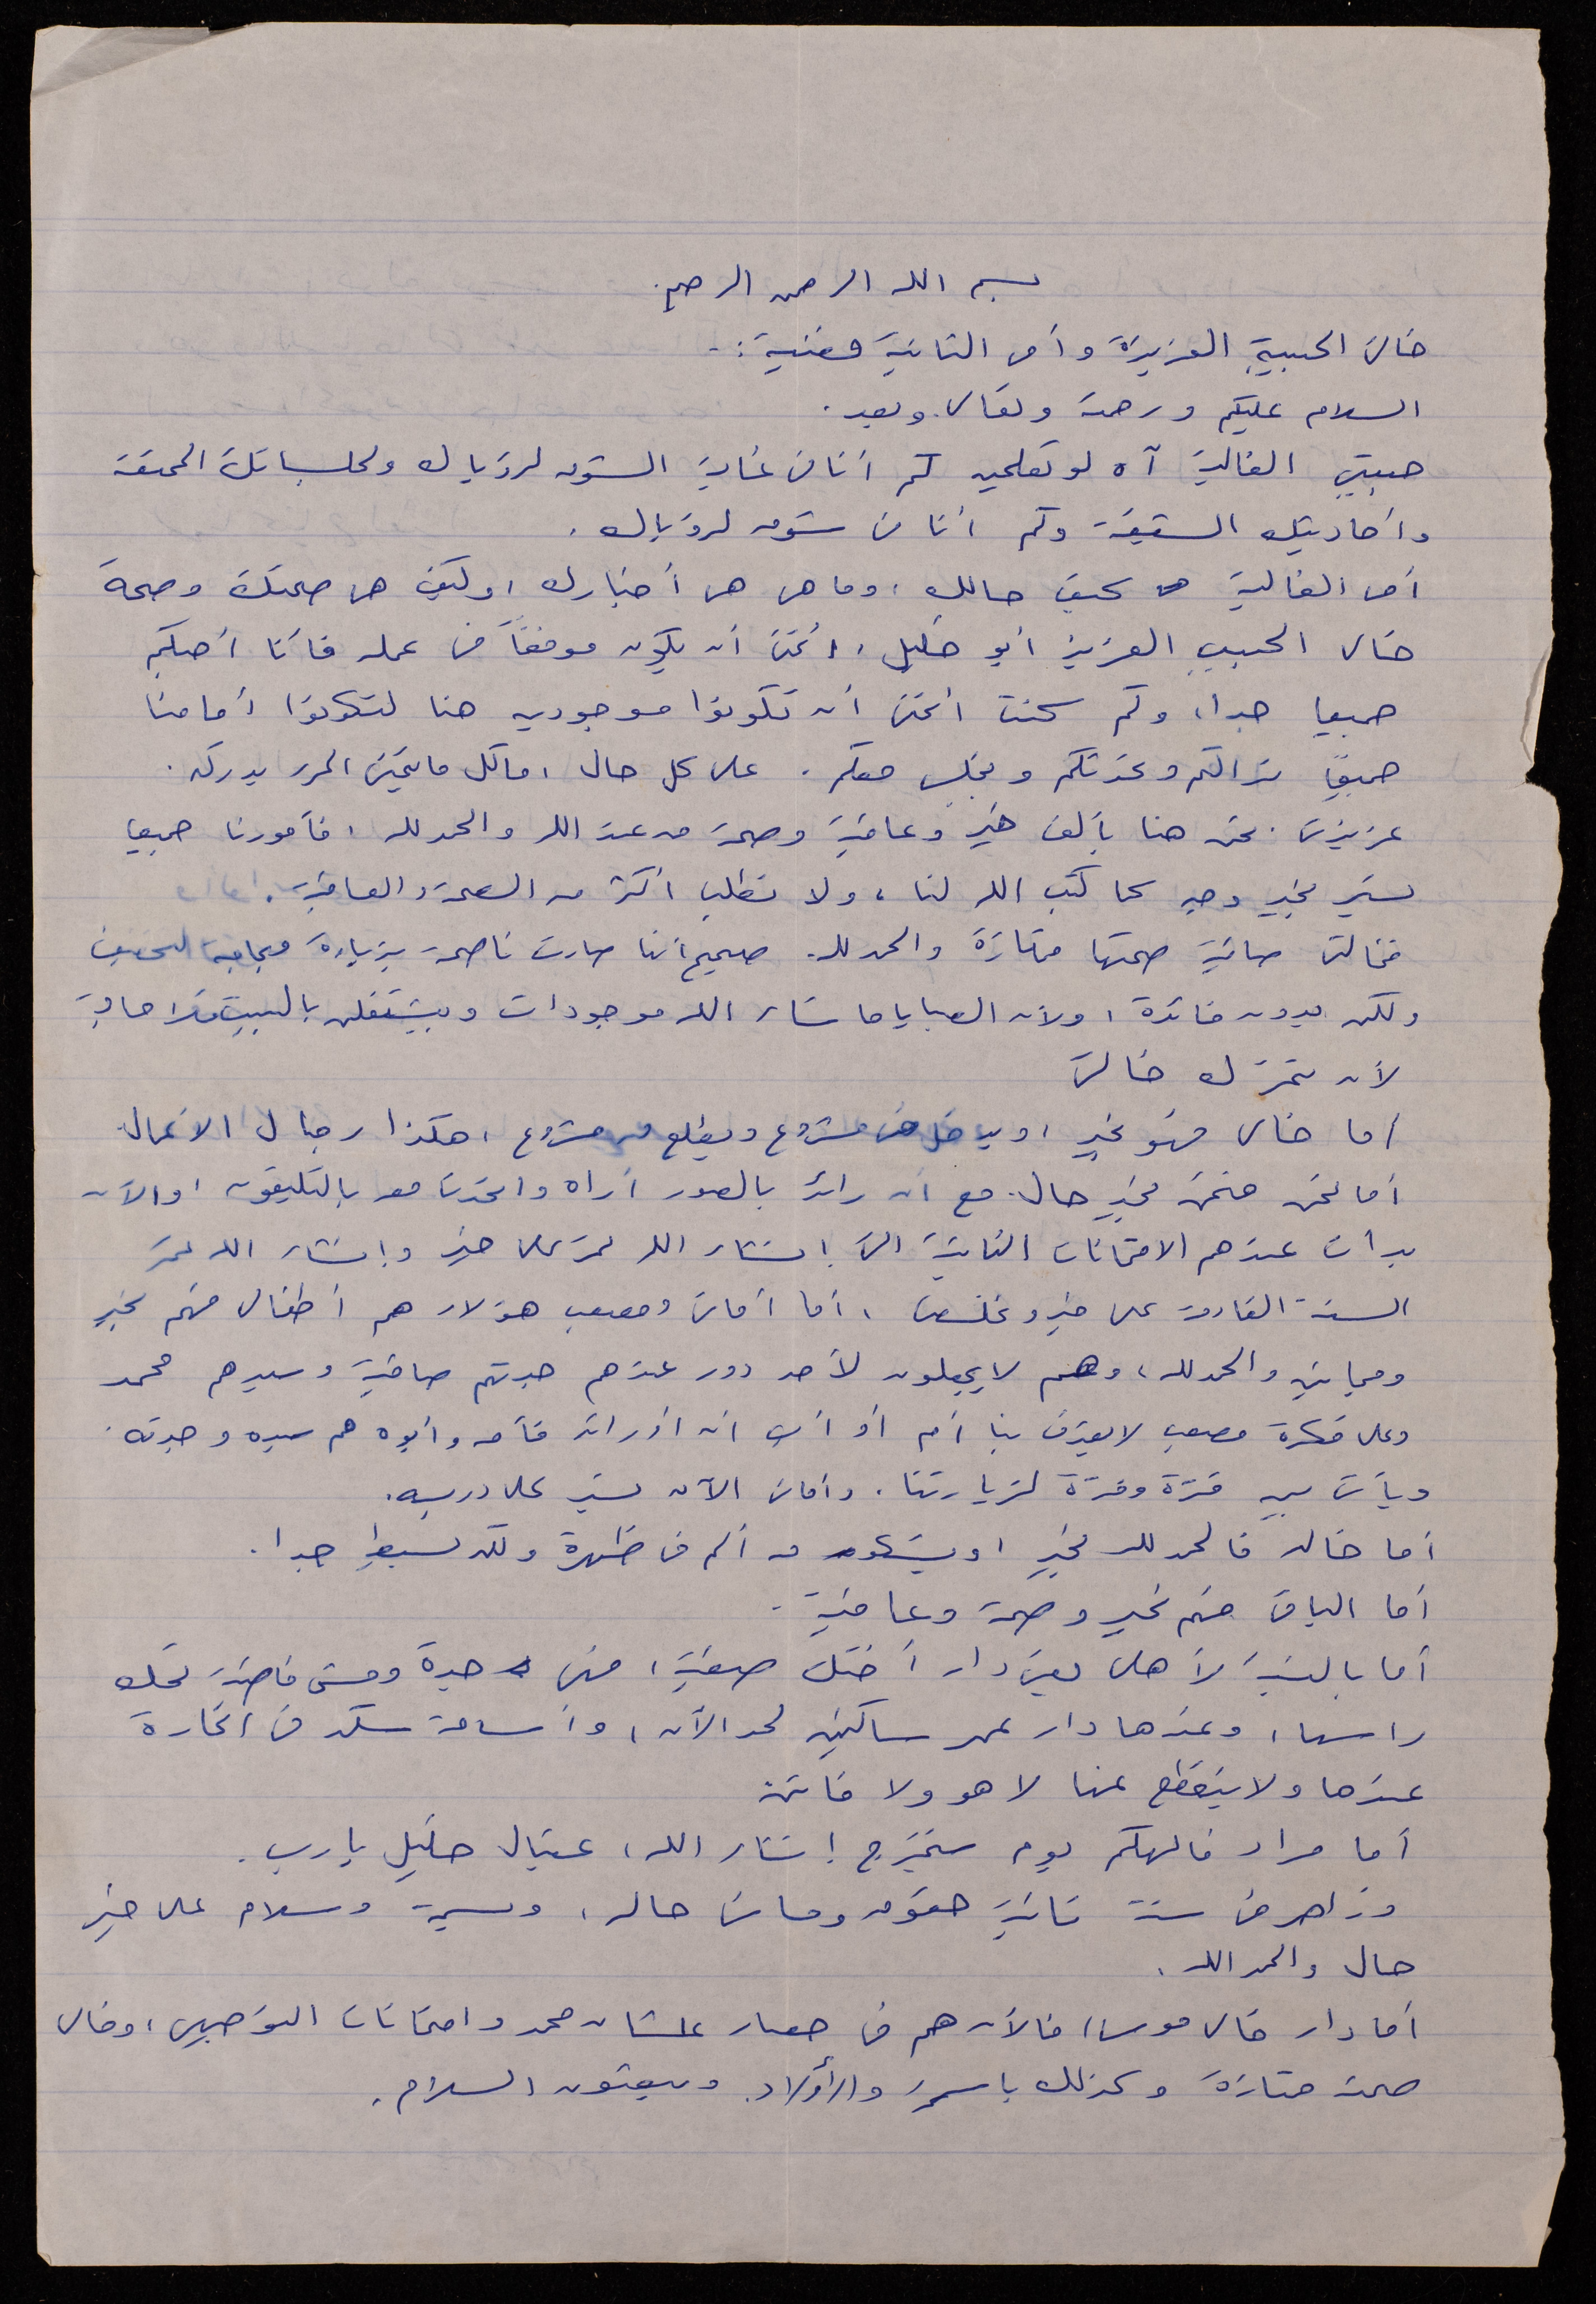 بسم الله الرحمن الرحيم.
خالتي الحبيبة العزيزة وأمي الثانية فهمية :-
السلام عليكم ورحمته وتعالى وبعد .
حبيبتي الغالية آه لو تعلمين كم أنا في غاية الشوق لرؤياك ولجلساتك الممتعة
وأحاديثك الشيقة وكم أنا في شوق لرؤياك .
أمي الغالية كيف حالك ، وما هي هي أخبارك ، وكيف هي صحتك وصحة
خالي الحبيب العزيز أبو خليل ، أتمنى أن يكون موفقاً في عمله فأنا أحبكم
جميعا جدا، وكم كنت أتمنى أن تكونوا موجودين هنا لتكونوا أمامنا
جميعًا نراكم ونحدثكم ونجلس معكم . على كل حال ، ما كل ما يتمنى المرء يدركه .
عزيزتي نحن هنا بألف خير وعافية وصحة من عند الله والحمد لله ، فأمورنا جميعا
تسير بخير وجه كما كتب الله لنا ، ولا نطلب أكثر من الصحة والعافية .
فخالتي صافية صحتها ممتازة والحمد لله . صحيح أنها صارت ناصحة بزيادة
ولكن بدون فائدة ، ولأن الصبايا ما شاء الله موجودات وبيشتغلن بالبيت فلا حاجة
لأن تتحرك خالتي
أما خالي فهو بخير ، ويدخل في مشروع ويطلع من مشروع ، هكذا رجال الأعمال
أما نحن فنحن بخير حال . مع أن رائد بالصور أراه وأتحدث معه بالتليفون ، والآن
بدأت عندهم الامتحانات الثانية التي إنشاء الله تمر على خير وإنشاء الله تمر
السنة القادمة على خير ونخلص ، أما أماني ومصعب هؤلاء هم أطفالي فهم بخير
ومجانين والحمد لله ، وهم لا يجعلون لأحد دور عندهم جدتهم صافية وسيدهم محمد
وعلى فكرة مصعب لا يعترف بنا أم أو أب أنا أو رائد فأمه وأبوه هم سيده وجدته .
ويأتي بين فترة وفترة لزيارتنا . وأماني الآن تسير على دربه .
أما خالد فالحمد لله بخير ، ويشكو من ألم في ظهره ولكن بسيط جدا .
أما الباقي فهم بخير وصحة وعافية .
أما بالنسبة لأهلي يعني دار أختك صفية ، فهي جيدة ومش فاضية تحك
راسها ، وعندها دار عمر ساكنين لحد الآن ، وأسامة سكن في الحارة
عندها ولا ينقطع عنها لا هو ولا فاتن
أما مراد فالهكم يوم ستتخرج إنشاء الله ، عقبال خليل يا رب .
وزاهر في سنة ثانية حقوق وماشي حاله ، وسمية وسلام على خير
حال والحمد الله .
أما دار خالي موسى فالآن هم في حصار علشان محمد وامتحانات التوجيهي ، وخالي
صحته ممتازة وكذلك ياسمين والأولاد . ويبعثون السلام .